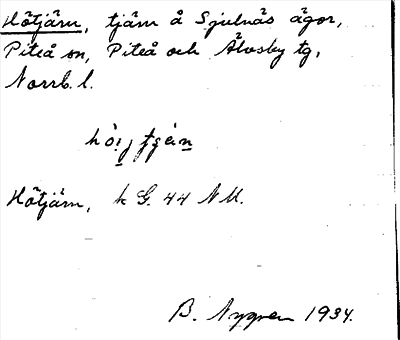 Hötjärn, tjärn å Sjulnäs ägor,
Piteå sn, Piteå och Älvsby tg,
Norrb. l.
Hötjärn, k G. 44 NU.
B. Nygren 1934.